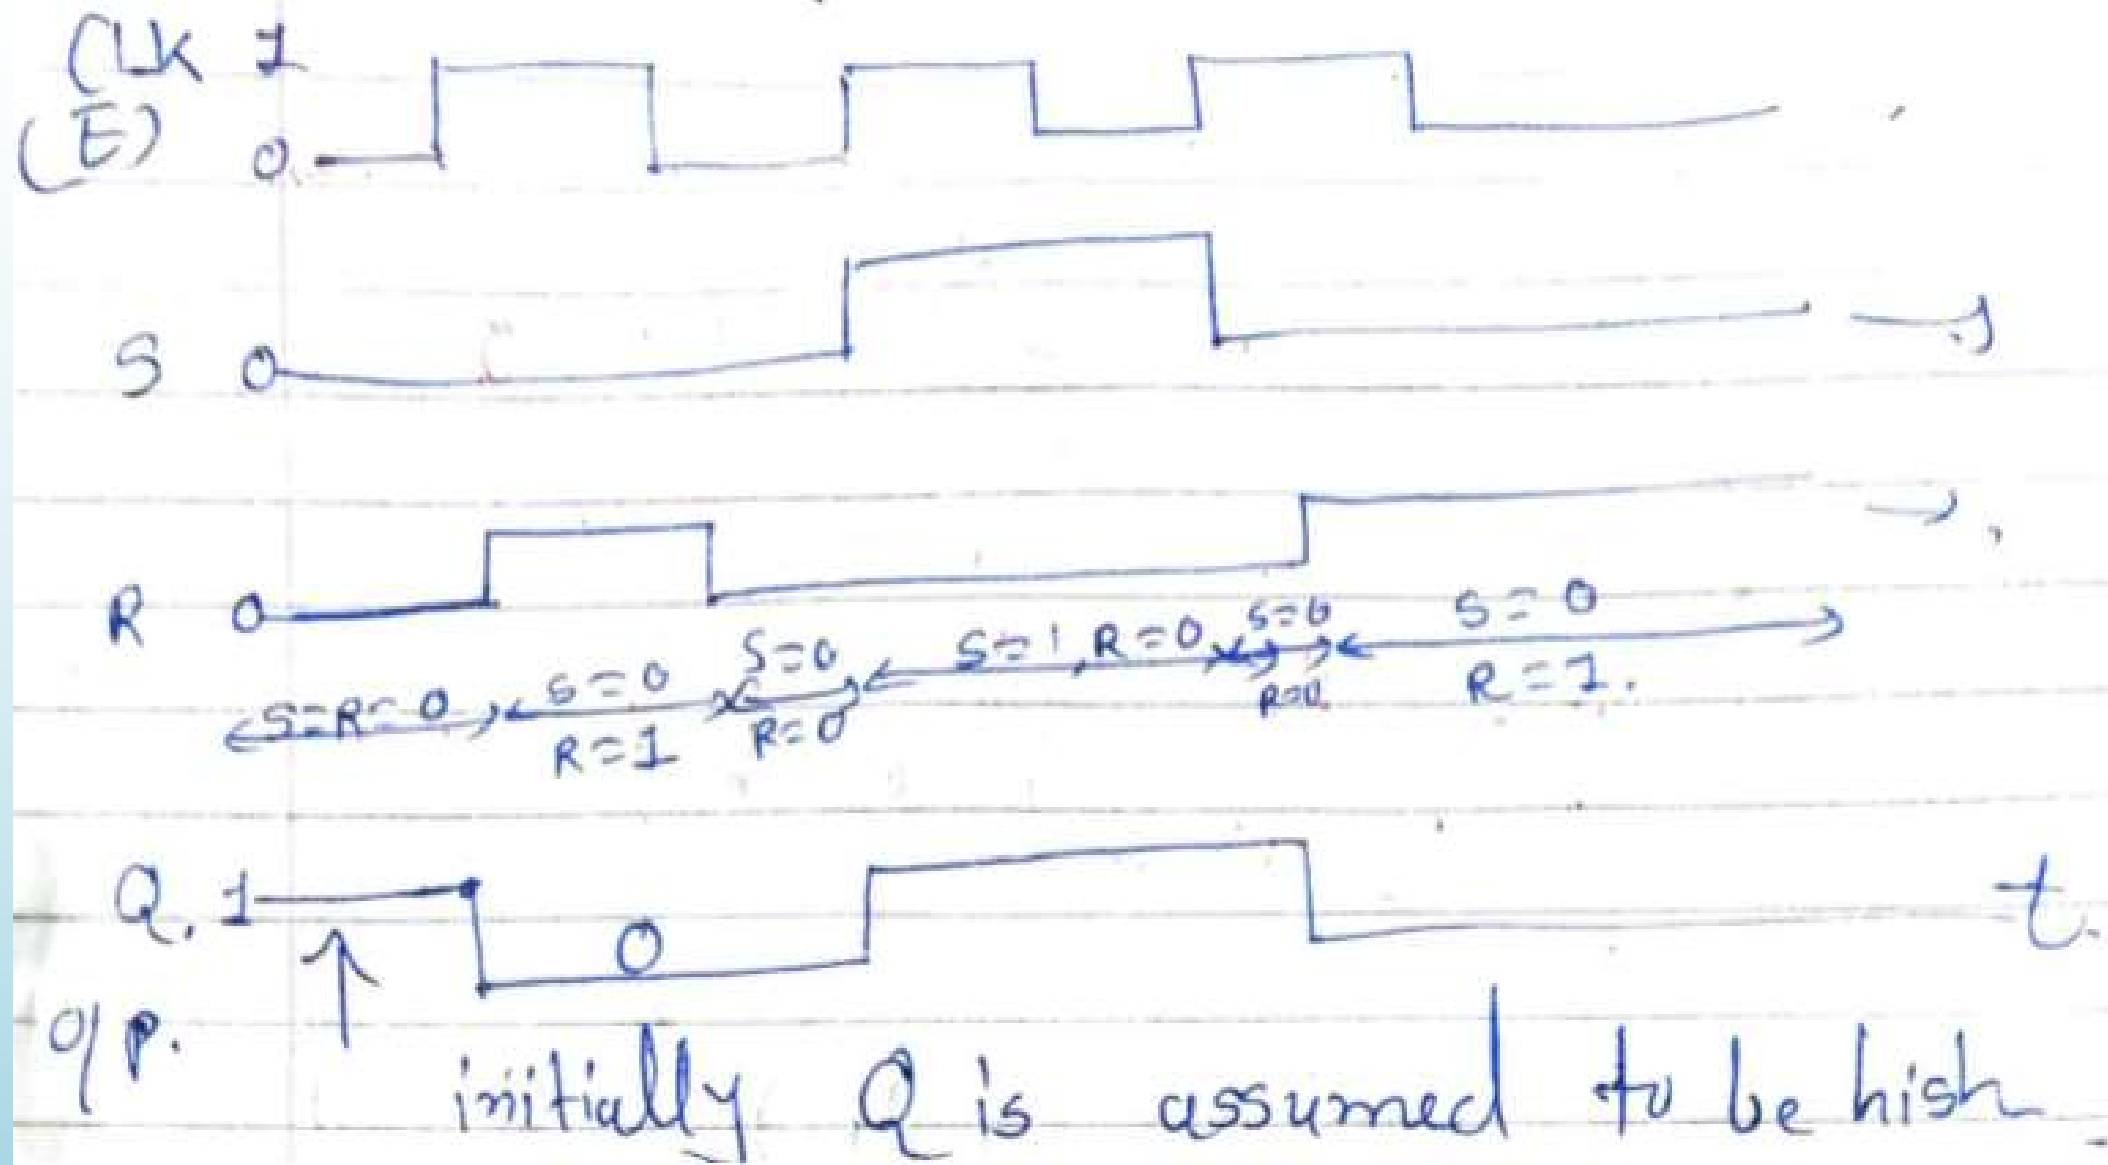 CLK 1
(E) 0
S 0
R 0
S=R=0
S=0
R=1
S=0
R=0
S=1, R=0
S=0
R=0
S=0
R=1.
Q. 1
0
t.
o/p.
initially Q is assumed to be high